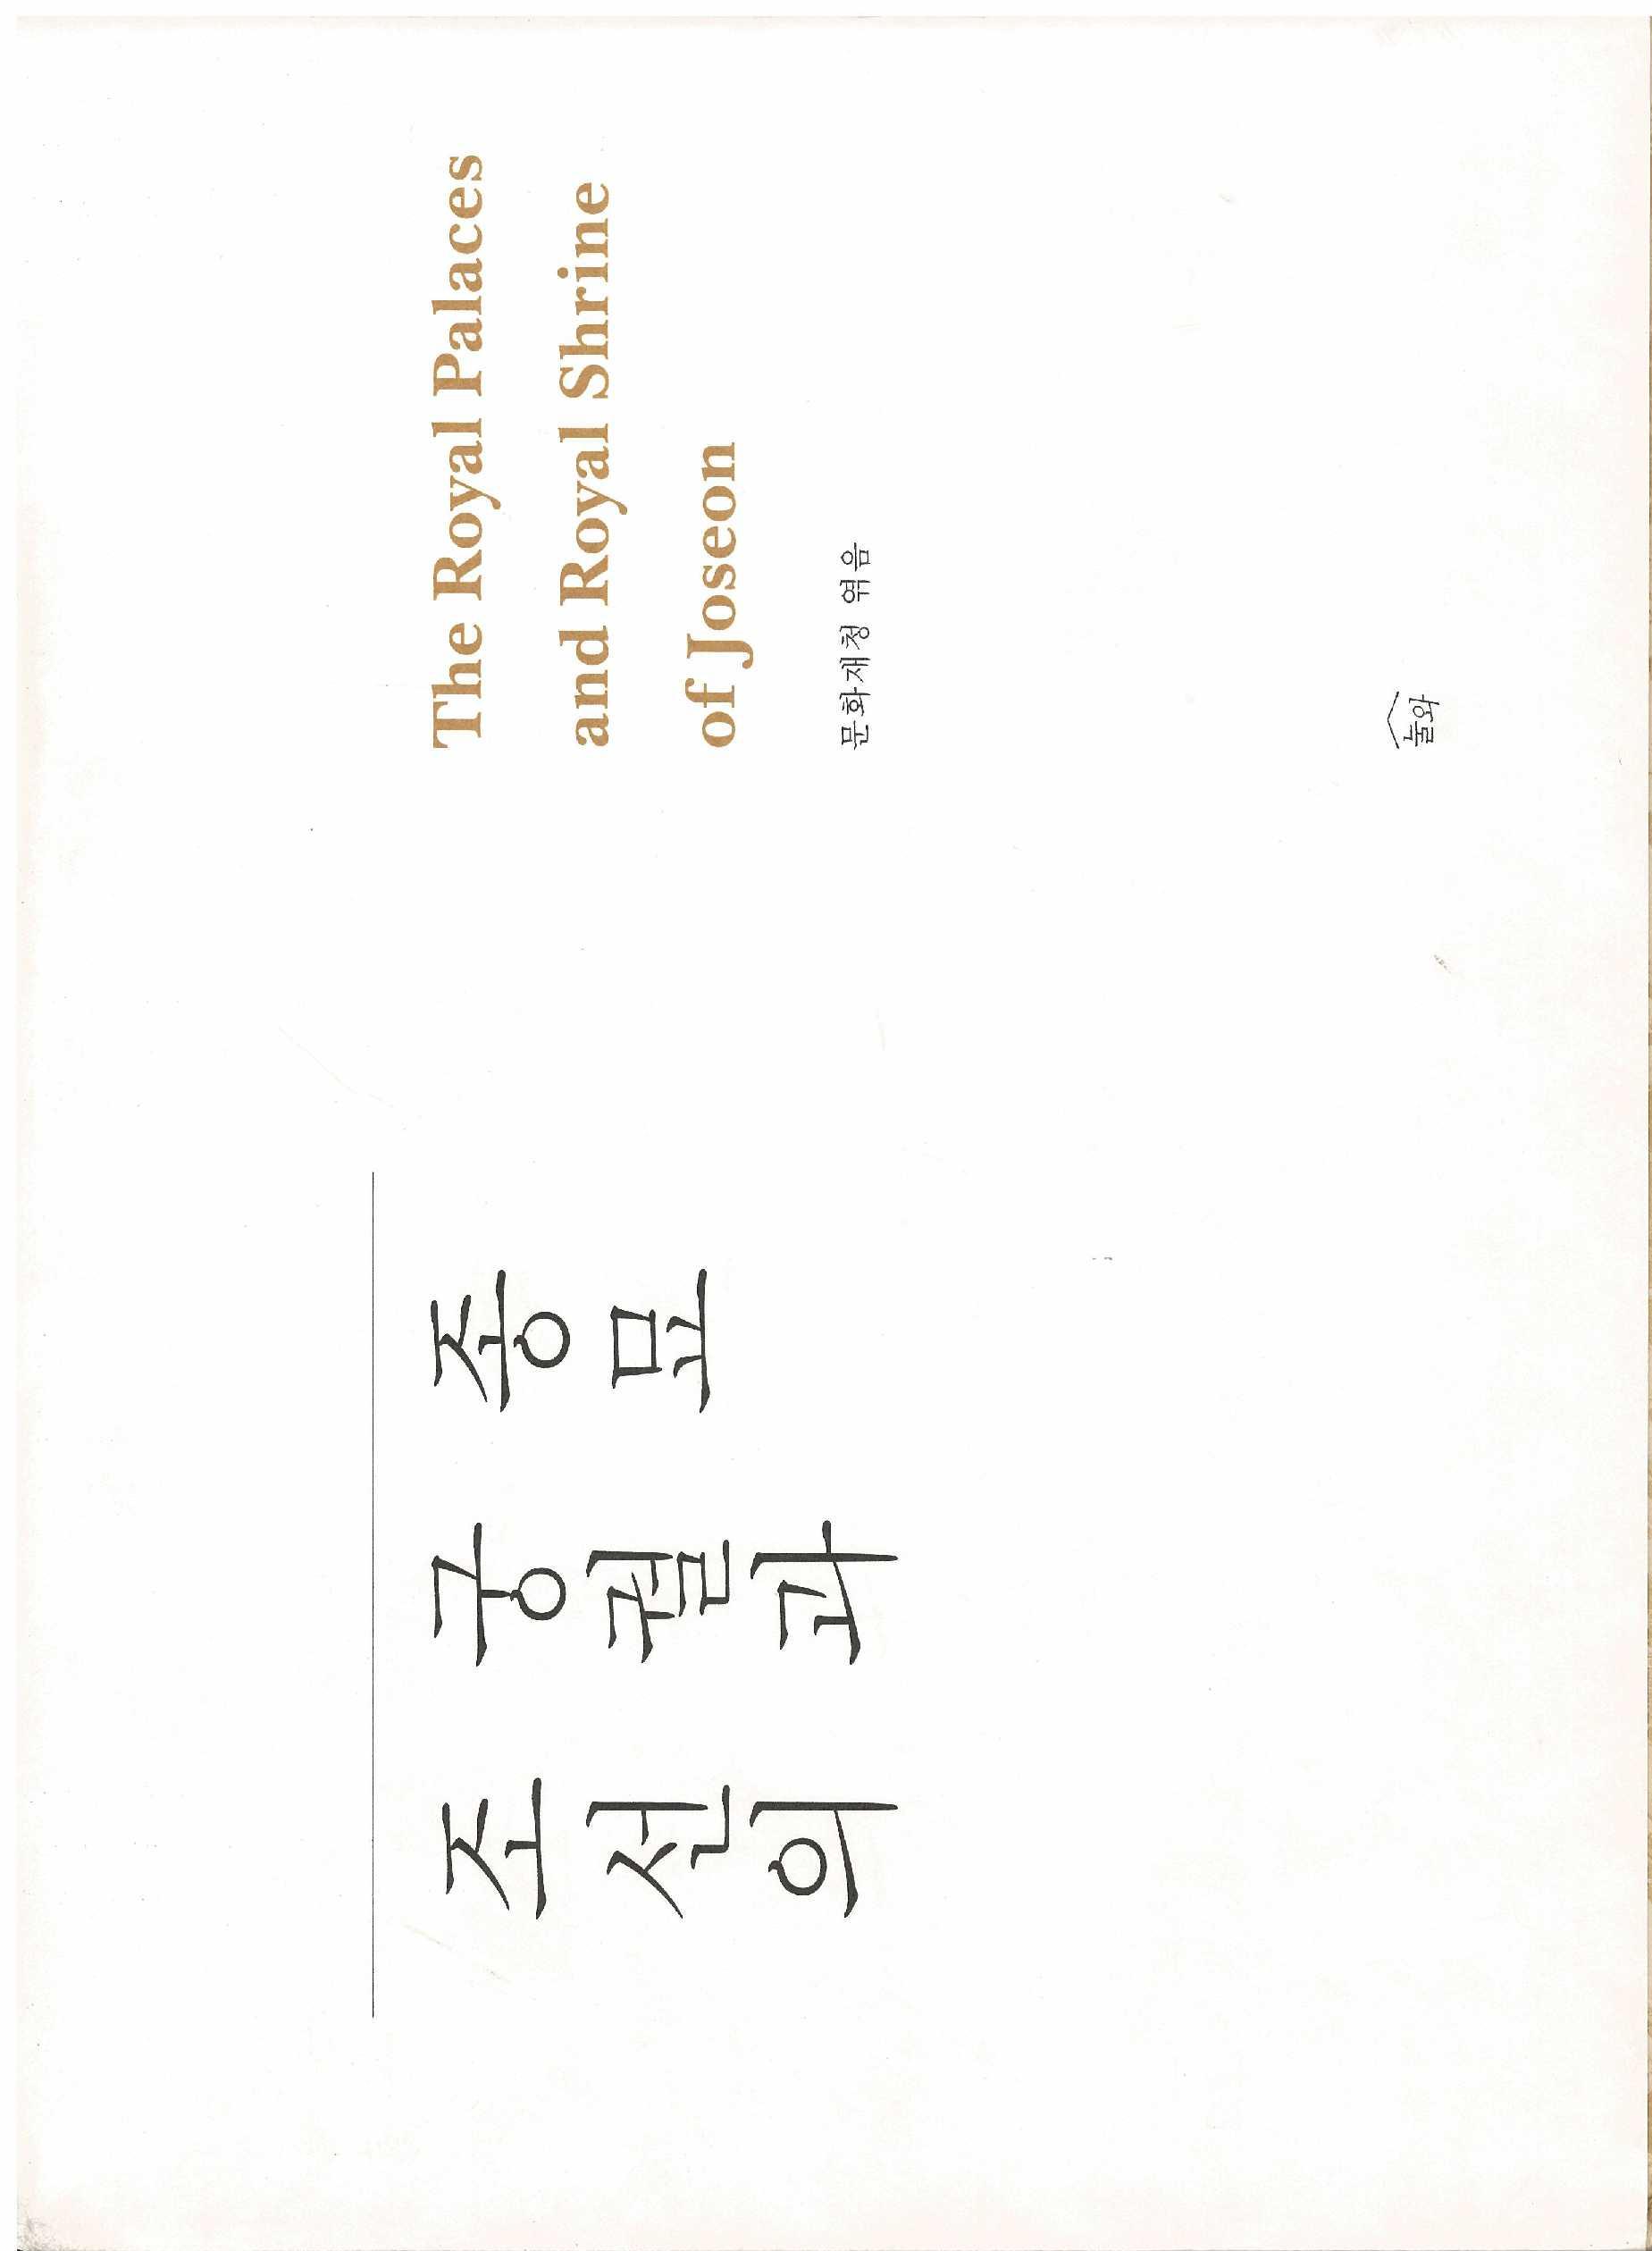 조선의
궁궐과
종묘
The Royal Palaces
and Royal Shrine
of Joseon
문화재청 엮음
눌와